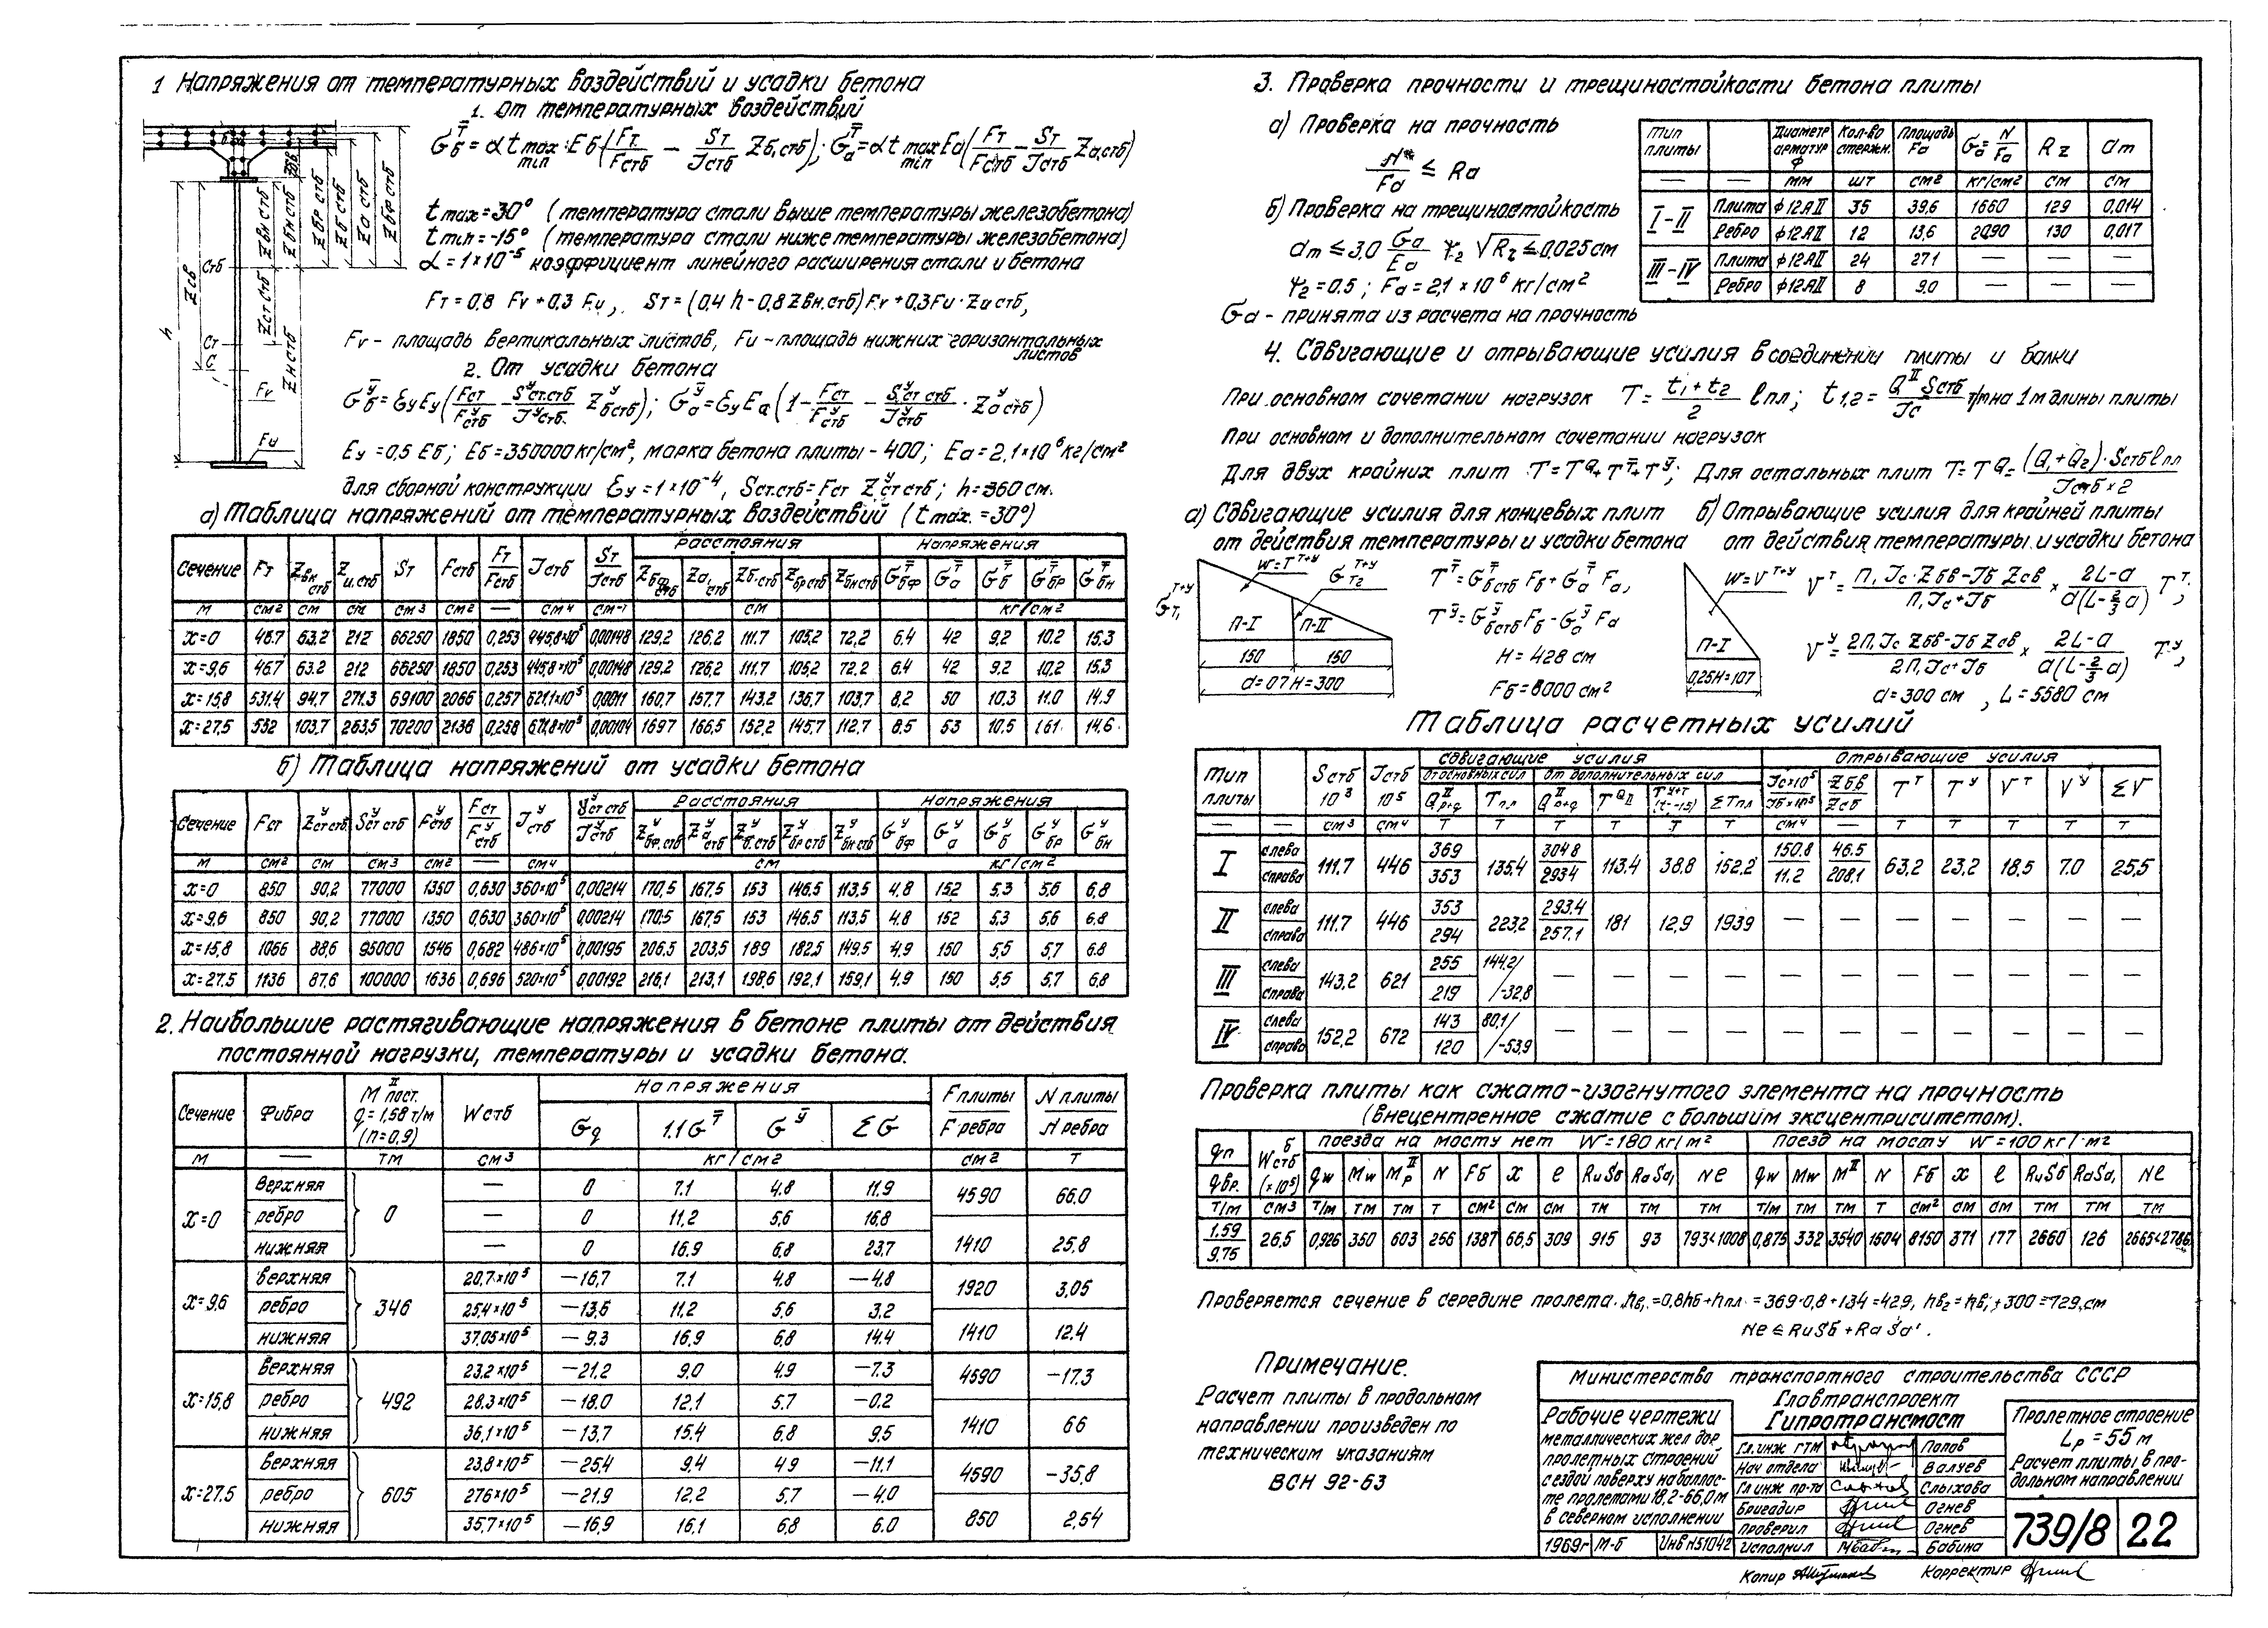 1 Напряжения от температурных воздействий и усадки бетона
1. От температурных воздействий
t max = 30° (температура стали выше температуры железобетона)
t min = -15° (температура стали ниже температуры железобетона)
α = 1×10⁻⁵ коэффициент линейного расширения стали и бетона
Fт = 0,8 Fv + 0,3 Fu, Sт = (0,4 h - 0,8 Zвн.стб) Fv + 0,3 Fu · Zи стб,
Fv - площадь вертикальных листов, Fu - площадь нижних горизонтальных
листов
2. От усадки бетона
Eу = 0,5 Eб; Eб = 350000 кг/см², марка бетона плиты - 400; Eа = 2,1×10⁶ кг/см²
для сборной конструкции Ɛу = 1×10⁻⁴, Sст.стб = Fст Zʸст стб; h = 360 см.
а) Таблица напряжений от температурных воздействий (t max. = 30°)
Сечение Fт Zвн стб Zи,стб Sт Fстб Fт/Fстб Jстб Sт/Jстб Расстояния Напряжения
м см² см см см³ см² — см⁴ см⁻¹ см кг/см²
x=0 46.7 63.2 212 66250 1850 0,253 445,8×10⁵ 0,00148 129.2 126.2 111.7 105,2 72,2 6.4 42 9.2 10.2 15.3
x=9,6 46.7 63.2 212 66250 1850 0,253 445,8×10⁵ 0,00148 129.2 126,2 111.7 105,2 72.2 6.4 42 9.2 10,2 15.3
x=15,8 531.4 94,7 271.3 69100 2066 0,257 621,1×10⁵ 0,0011 160,7 157.7 143,2 136,7 103,7 8,2 50 10,3 11.0 14.9
x=27,5 532 103,7 263,5 70200 2136 0,258 671,8×10⁵ 0,00104 1697 166,5 152,2 145,7 112,7 8.5 53 10,5 161 14,6
б) Таблица напряжений от усадки бетона
Сечение Fст Zʸст стб Sʸст стб Fʸстб Fст/Fʸстб Jʸстб Sʸст стб/Jʸстб Расстояния Напряжения
м см² см см³ см² — см⁴ см кг/см²
x=0 850 90,2 77000 1350 0,630 360×10⁵ 0,00214 170,5 167,5 153 146,5 113,5 4,8 152 5,3 5,6 6,8
x=9,6 850 90,2 77000 1350 0,630 360×10⁵ 0,00214 170,5 167,5 153 146,5 113,5 4,8 152 5,3 5,6 6.8
x=15,8 1066 88,6 95000 1546 0,682 486×10⁵ 0,00195 206,5 203,5 189 182,5 149,5 4,9 150 5,5 5,7 6.8
x=27.5 1136 87,6 100000 1636 0,696 520×10⁵ 0,00192 216,1 213,1 198,6 192,1 159,1 4.9 150 5,5 5,7 6,8
2. Наибольшие растягивающие напряжения в бетоне плиты от действия
постоянной нагрузки, температуры и усадки бетона.
Сечение Фибра M II пост. q = 1,58 т/м (n=0,9) Wстб Напряжения F плиты/F ребра N плиты/N ребра
σq 1.1 σT σУ Σσ
м — тм см³ кг/см² см² т
x=0 0
верхняя — 0 7.1 4.8 11.9 4590 66.0
ребро — 0 11,2 5,6 16,8
нижняя — 0 16,9 6,8 23,7 1410 25.8
x=9,6 346
верхняя 20,7×10⁵ —16,7 7.1 4.8 —4.8 1920 3,05
ребро 25,4×10⁵ —13,6 11,2 5,6 3,2
нижняя 37,05×10⁵ —9.3 16,9 6,8 14.4 1410 12.4
x=15,8 492
верхняя 23,2×10⁵ —21,2 9,0 4,9 —7.3 4590 —17.3
ребро 28,3×10⁵ —18.0 12,1 5,7 —0.2
нижняя 36,1×10⁵ —13,7 15.4 6.8 9,5 1410 66
x=27.5 605
верхняя 23,8×10⁵ —25,4 9,4 4 9 —11,1 4590 —35,8
ребро 276×10⁵ —21.9 12,2 5,7 —4,0
нижняя 35,7×10⁵ —16,9 16,1 6,8 6.0 850 2,54
3. Проверка прочности и трещиностойкости бетона плиты
а) Проверка на прочность
N/Fа ≤ Rа
б) Проверка на трещиностойкость
Ψ₂ = 0.5; Fа = 2,1×10⁶ кг/см²
σа - принята из расчета на прочность
Тип плиты Диаметр арматур ф Кол-во стержн. Площадь Fа σа=N/Fа Rz аm
— — мм шт см² кг/см² см см
I-II Плита ф12АII 35 39,6 1660 129 0,014
Ребро ф12АII 12 13,6 2090 130 0,017
III-IV Плита ф12АII 24 271 — — —
Ребро ф12АII 8 9.0 — — —
4. Сдвигающие и отрывающие усилия в соединении плиты и балки
При основном сочетании нагрузок T = (t₁+t₂)/2 lпл; t₁,₂ = QII Sстб/Jс т/м на 1м длины плиты
При основном и дополнительном сочетании нагрузок
Для двух крайних плит T = TQ + TT + TУ; Для остальных плит T = TQ = (Q₁+Q₂)·Sстб lпл / Jстб×2
а) Сдвигающие усилия для концевых плит
от действия температуры и усадки бетона
П-I П-II
150 150
d = 0 7 H = 300
H = 428 см
Fб = 8000 см²
б) Отрывающие усилия для крайней плиты
от действия температуры и усадки бетона
П-I
0,25H = 107
d = 300 см, L = 5580 см
Таблица расчетных усилий
Тип плиты Sстб 10³ Jстб 10⁵ Сдвигающие усилия Отрывающие усилия
От основных сил От дополнительных сил
— — см³ см⁴ т т т т т т см⁴ — т т т т т
I слева справа 111.7 446 369/353 135.4 304 8/293 4 113.4 38.8 152.2 150.8/11.2 46.5/208,1 63,2 23.2 18.5 7.0 25,5
II слева справа 111.7 446 353/294 223,2 293.4/257.1 181 12,9 1939 — — — — — — —
III слева справа 143,2 621 255/219 144.2/-32,8 — — — — — — — — — — —
IV слева справа 152,2 672 143/120 80,1/-53,9 — — — — — — — — — — —
Проверка плиты как сжато-изогнутого элемента на прочность
(внецентренное сжатие с большим эксцентриситетом).
qп/qвр. Wб стб (×10⁵) поезда на мосту нет W = 180 кг/м² поезд на мосту W = 100 кг/м²
qw Mw MIIр N Fб x e RиSб RаSа, Ne qw Mw MII N Fб x e RиSб RаSа, Ne
т/м см³ т/м тм тм т см² см см тм тм тм т/м тм тм т см² см см тм тм тм
1.59/9.75 26,5 0,926 350 603 256 1387 66,5 309 915 93 793<1008 0,875 332 3540 1504 8150 371 177 2660 126 2665<2786
Проверяется сечение в середине пролета. hв₁ = 0,8hб + hпл = 369·0,8 + 134 = 429, hв₂ = hв₁ + 300 = 729,см
Ne ≤ RиSб + RаSа'.
Примечание.
Расчет плиты в продольном
направлении произведен по
техническим указаниям
ВСН 92-63
Министерство транспортного строительства СССР
Главтранспроект
Гипротрансмост
Рабочие чертежи
металлических жел дор
пролетных строений
с ездой поверху на баллас-
те пролетами 18,2-66,0м
в северном исполнении
1969г М-б Инв N 51042
Гл.инж ГТМ Попов
Нач отдела Валуев
Гл инж пр-та Слыхова
Бригадир Огнев
Проверил Огнев
Исполнил Бабина
Пролетное строение
Lр = 55 м
Расчет плиты в про-
дольном направлении
739/8 22
Копир Корректир